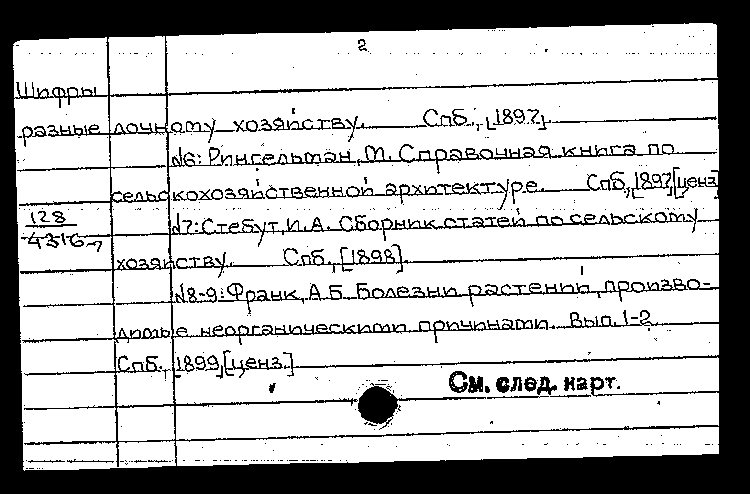 2
Шифры
разные дочному хозяйству. Спб., [1897].
№6: Рингельман, М. Справочная книга по
сельскохозяйственной архитектуре. Спб., [1897] [ценз.]
128
4316-7
№7: Стебут, И. А. Сборник статей по сельскому
хозяйству. Спб., [1898].
№8-9: Франк, А. Б. Болезни растений, произво-
димые неорганическими причинами. Вып. 1-2.
Спб., 1899, [ценз.]
См. след. карт.